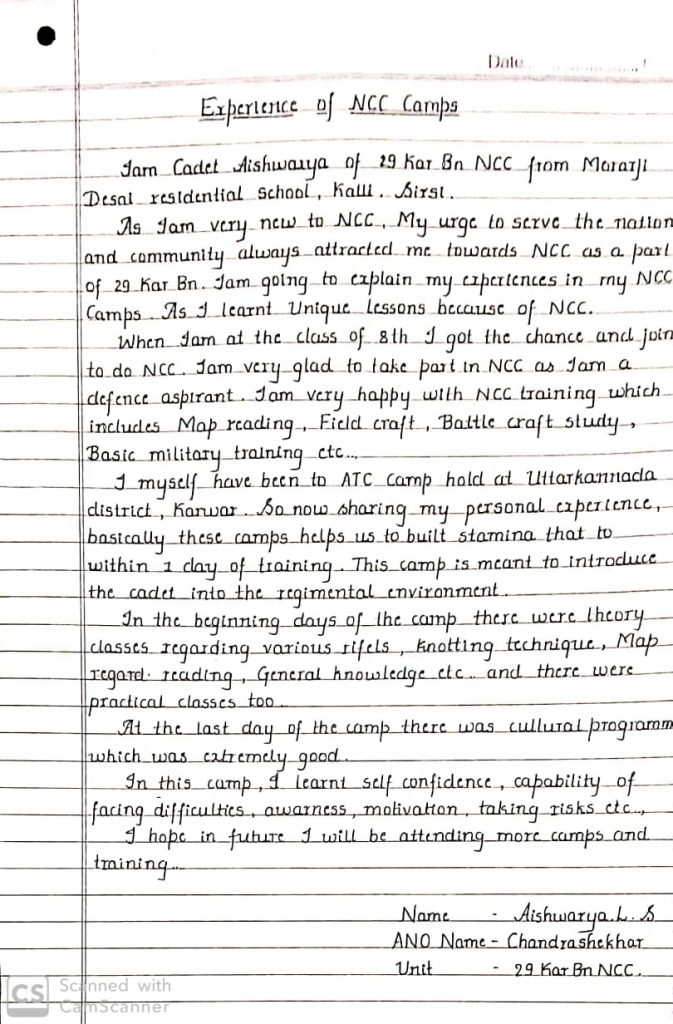 Date
Experience of NCC Camps
Iam Cadet Aishwarya of 29 Kar Bn NCC from Morarji
Desai residential school, Kalli. Sirsi.
As Iam very new to NCC, My urge to serve the nation
and community always attracted me towards NCC as a part
of 29 Kar Bn. Iam going to explain my experiences in my NCC
Camps. As I learnt Unique lessons because of NCC.
When Iam at the class of 8th I got the chance and join
to do NCC. Iam very glad to take part in NCC as Iam a
defence aspirant. Iam very happy with NCC training which
includes Map reading, Field craft, Battle craft study,
Basic military training etc..,
I myself have been to ATC camp hold at Uttarkannada
district, Karwar. So now sharing my personal experience,
basically these camps helps us to built stamina that to
within 1 day of training. This camp is meant to introduce
the cadet into the regimental environment.
In the beginning days of the camp there were theory
classes regarding various rifels, knotting technique, Map
regard. reading, General knowledge etc.. and there were
practical classes too..
At the last day of the camp there was cultural programm
which was extremely good..
In this camp, I learnt self confidence, capability of
facing difficulties, awarness, motivation, taking risks etc..,
I hope in future I will be attending more camps and
training...
Name - Aishwarya.L.S
ANO Name - Chandrashekhar
Unit - 29 Kar Bn NCC.
CS Scanned with
CamScanner